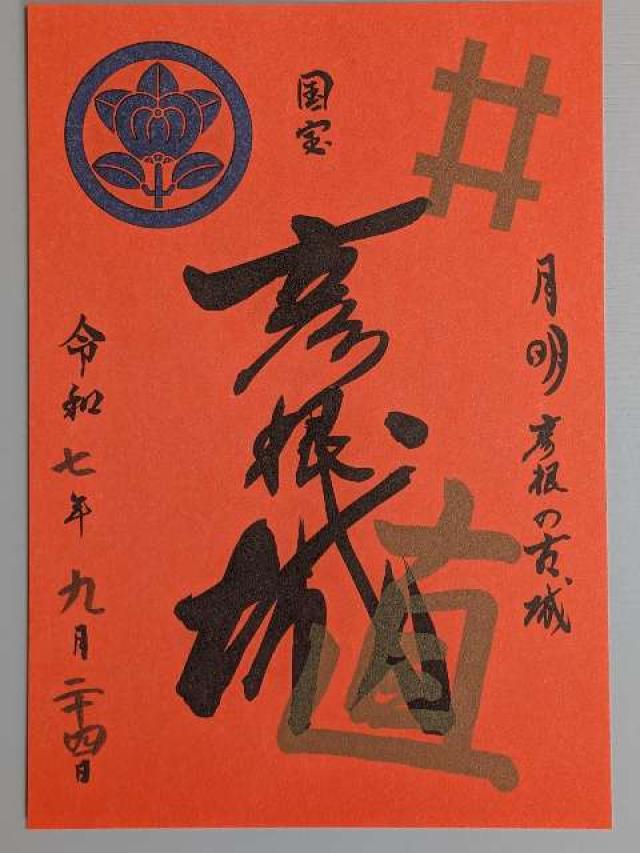 井
月明 彦根の古城
国宝
彦根城
直
令和七年 九月二十四日